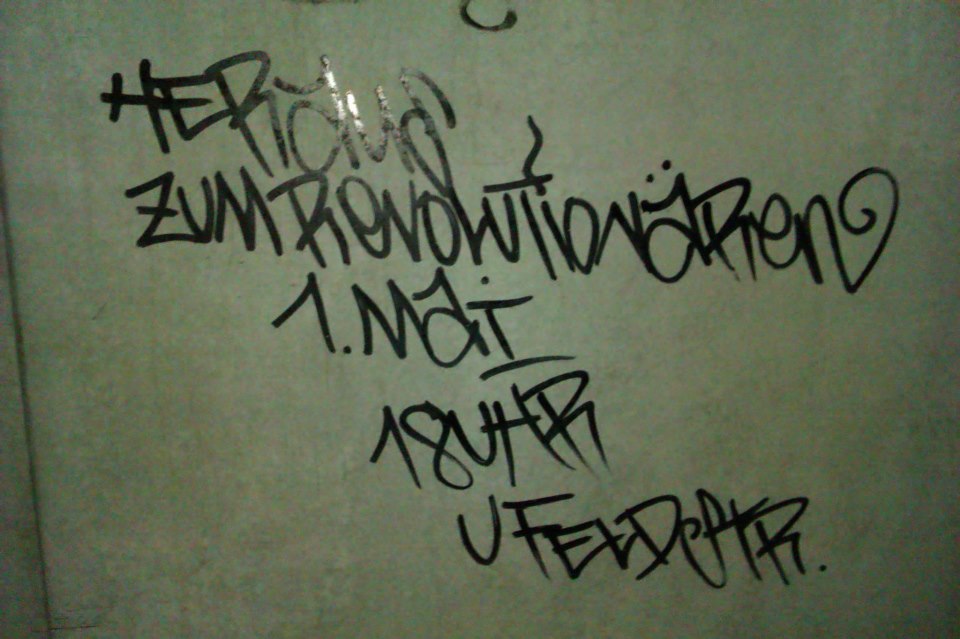 HERAUS
ZUM REVOLUTIONÄREN
1. MAI
18 UHR
U FELDSTR.